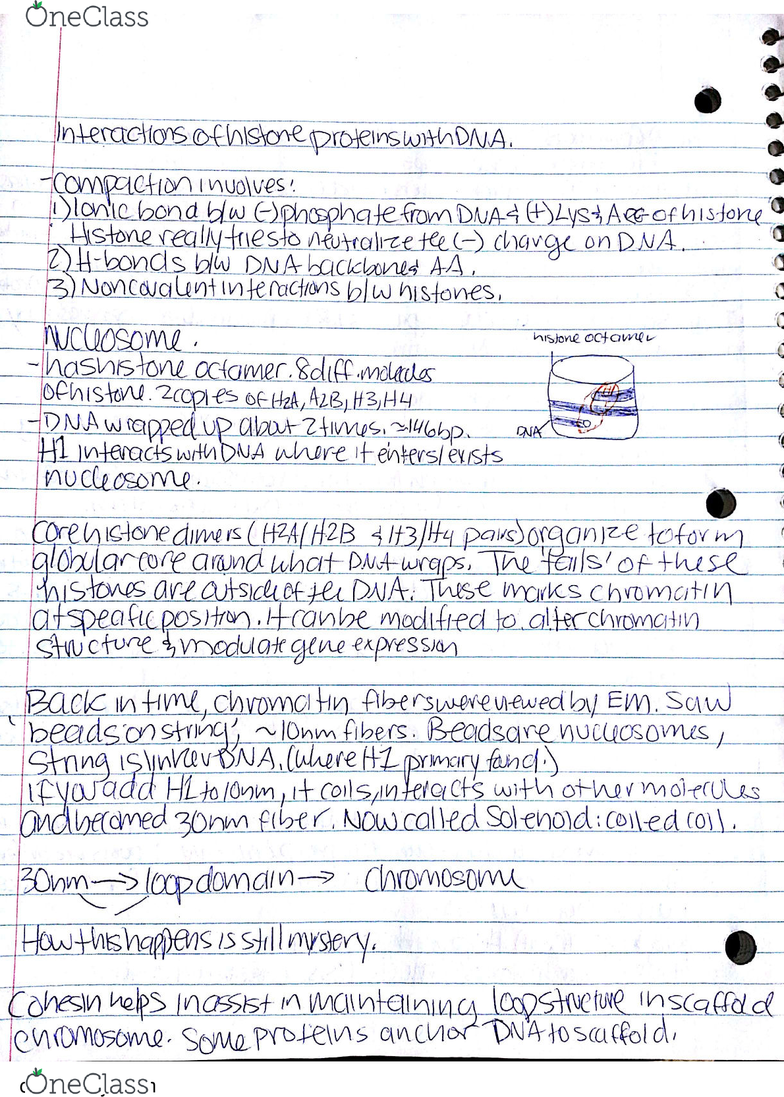 OneClass
Interactions of histone proteins with DNA.
-Compaction involves:
1) Ionic bond b/w (-) phosphate from DNA & (+) Lys & Arg of histone
Histone really tries to neutralize the (-) charge on DNA.
2) H-bonds b/w DNA backbone & AA.
3) Noncovalent interactions b/w histones.
Nucleosome.
- has histone octamer. 8 diff. molecules
of histone. 2 copies of H2A, A2B, H3, H4
- DNA wrapped up about 2 times. ~146bp.
H1 interacts with DNA where it enters/exists
nucleosome.
histone octamer
DNA
Core histone dimers (H2A/H2B & H3/H4 pairs) organize to form
globular core around what DNA wraps. The 'tails' of these
histones are outside of the DNA. These marks chromatin
at specific position. It can be modified to alter chromatin
structure & modulate gene expression
Back in time, chromatin fibers were viewed by EM. Saw
'beads on string', ~10nm fibers. Beads are nucleosomes,
string is linker DNA. (where H1 primary found.)
if you add H1 to 10nm, it coils, interacts with other molecules
and becomed 30nm fiber. Now called Solenoid: coiled coil.
30nm → loop domain → chromosome
How this happens is still mystery.
Cohesin helps in assist in maintaining loop structure in scaffold
chromosome. Some proteins anchor DNA to scaffold.
OneClass